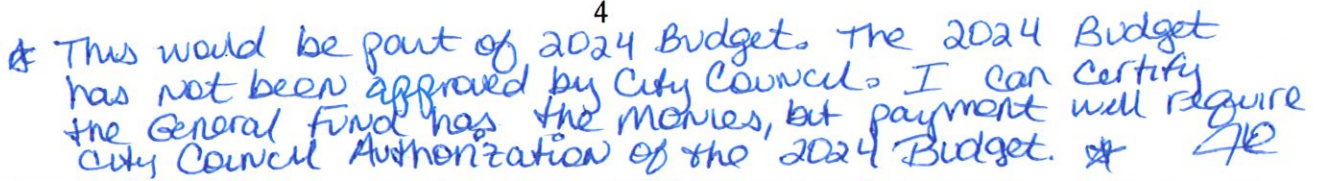 4
* This would be part of 2024 Budget. The 2024 Budget
has not been approved by City Council. I can certify
the General Fund has the monies, but payment will require
City Council Authorization of the 2024 Budget. *